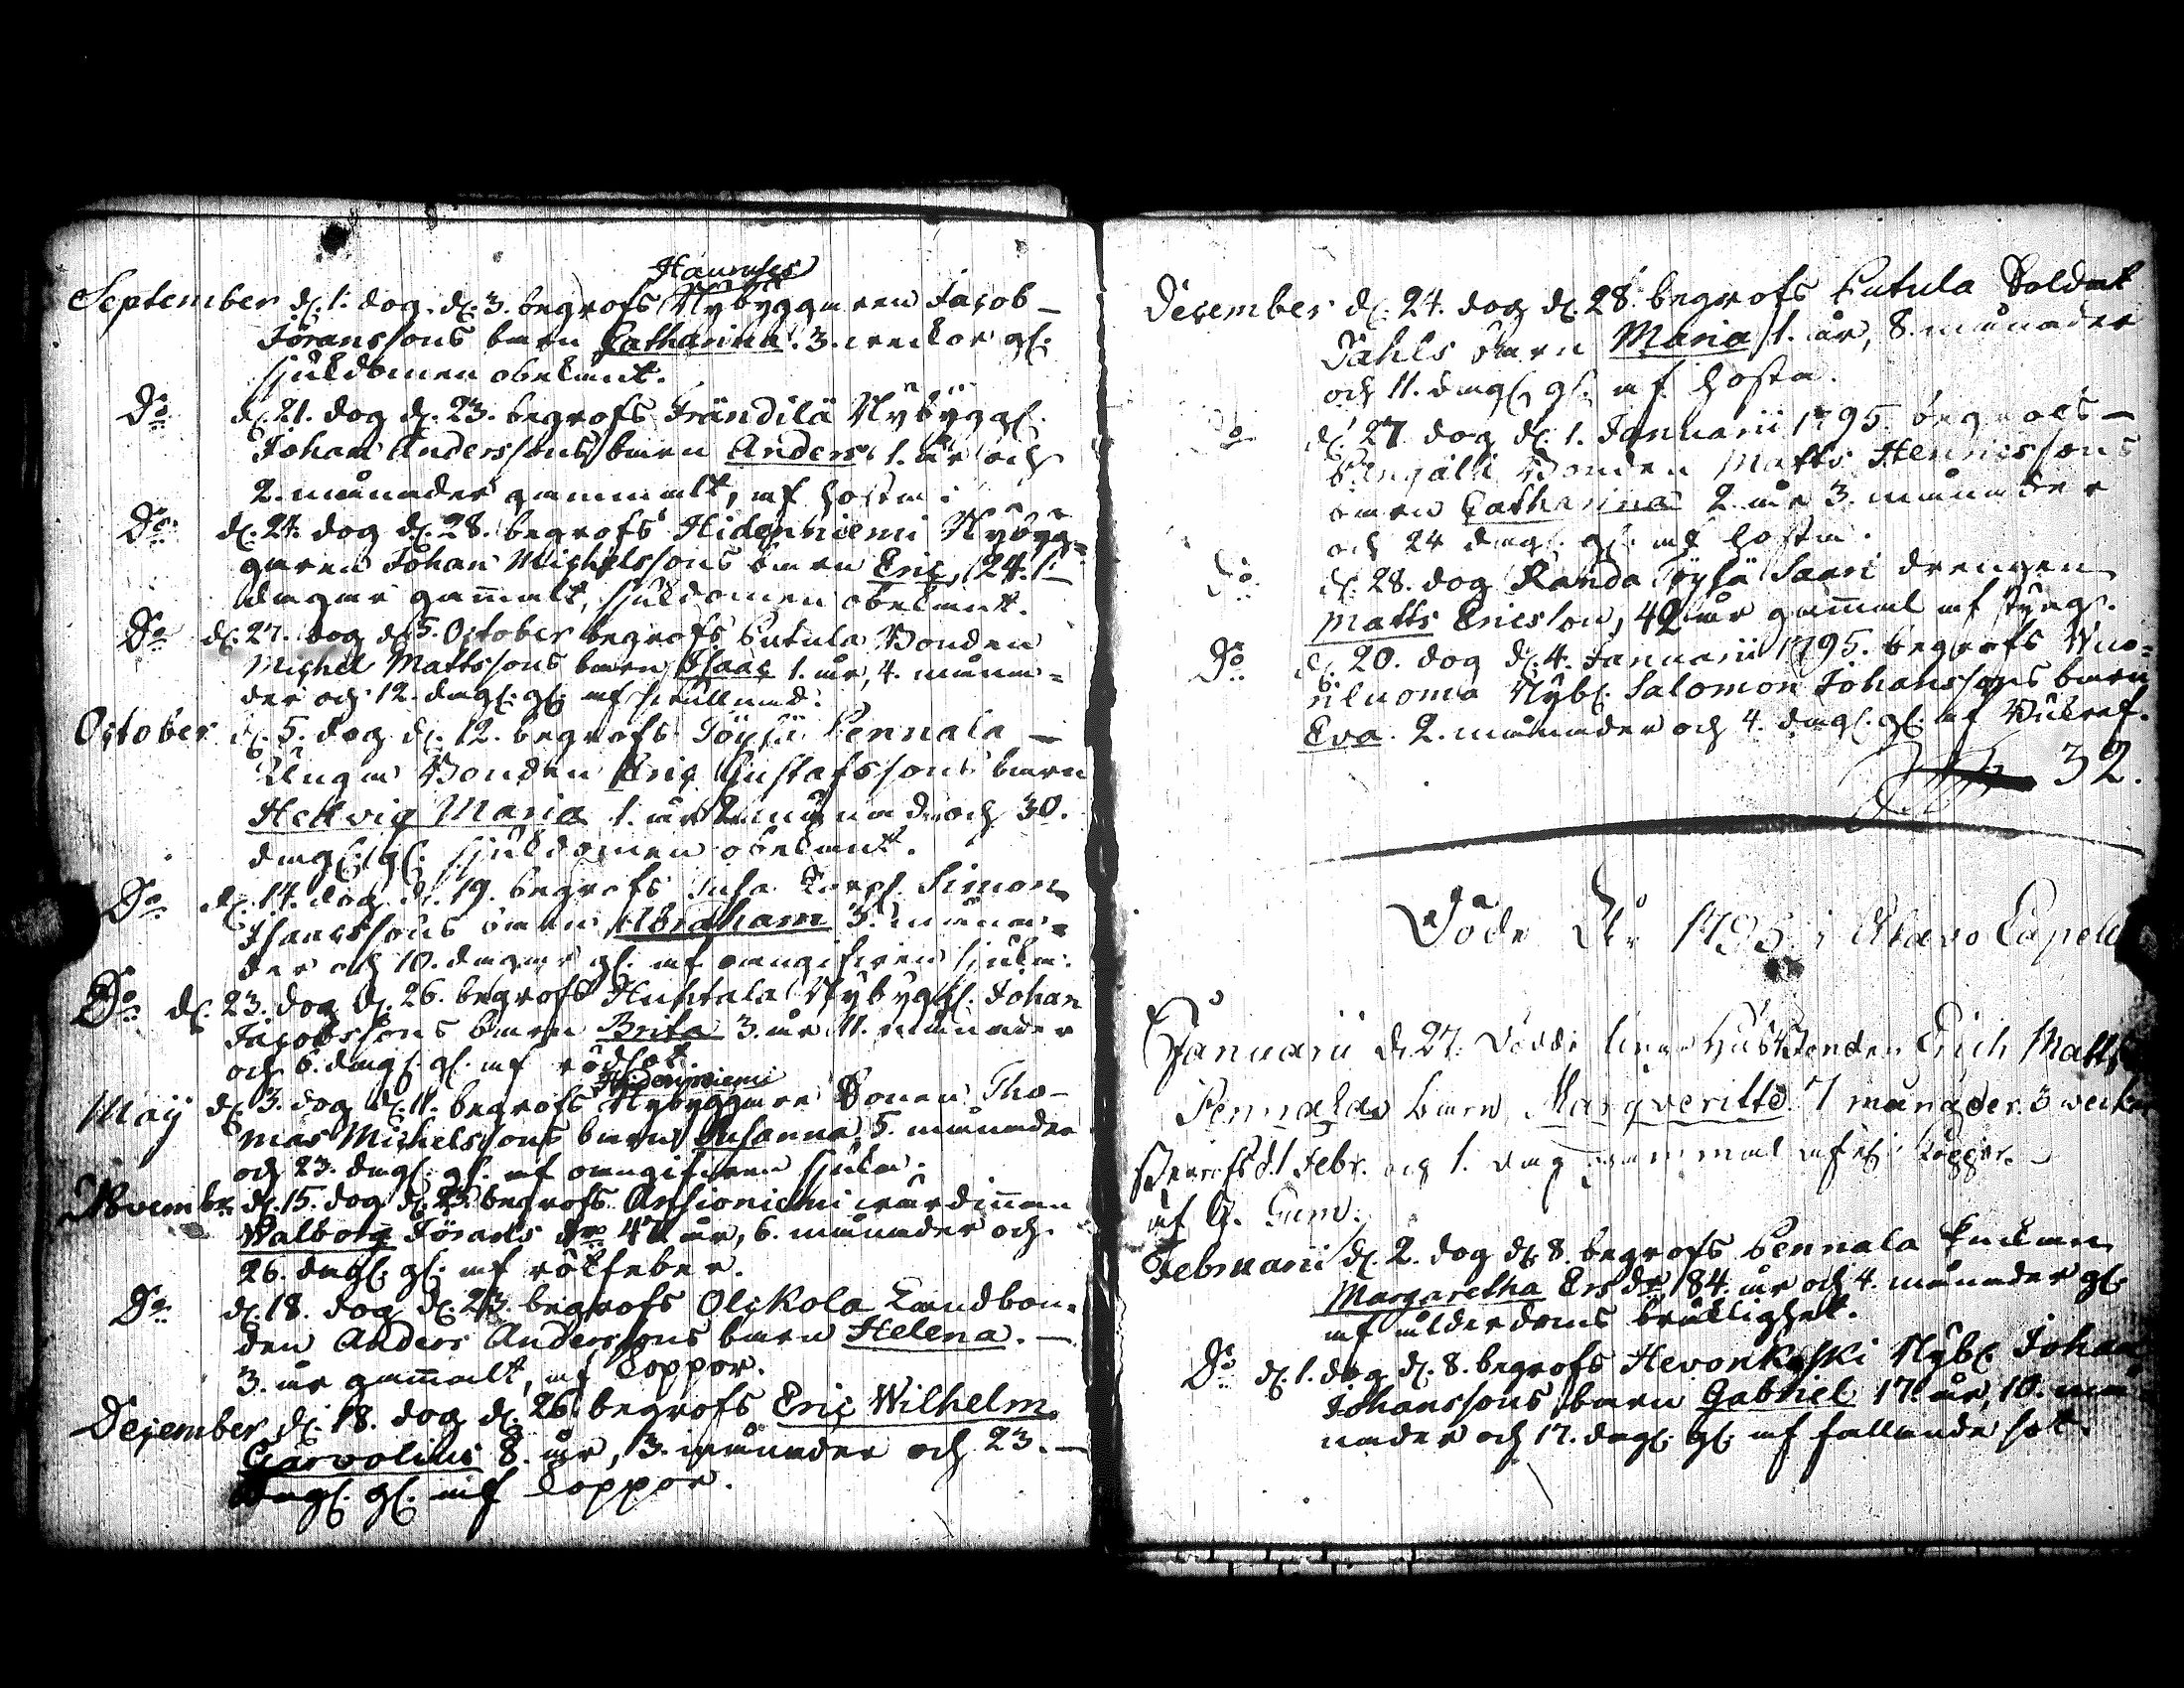 Haunuses
September d. 1. dog. d. 3. begrofs Nybyggaren Jacob
Jöranssons barn Catharina. 3. weckor gl.
sjukdomen obekant.
Do d. 21. dog d. 23. begrofs Frändilä Nybygg.
Johan Anderssons barn Anders 1. år och
2. månader gammalt, af hosta.
Do d. 24. dog d. 28. begrofs Hidenniemi Nybyg=
garen Johan Michelssons barn Eric, 24.
dagar gamalt, sjukdomen obekant.
Do d. 27. dog d. 5. October begrofs Eutula Bonden
Michel Mattssons barn Isaac 1. år, 4. måna=
der och 12. dag. gl. af
October d. 5. dog d. 12. begrofs Töysä Pennala
Unga Bonden Eric Gustafssons barn
Hedvig Maria 1. år månad och 30.
dag. gl. sjukdomen obekant.
Do d. 14. dog d. 19. begrofs Torp. Simon
Isaacssons barn Abraham 3. måna=
der och 10. dagar gl. af oangifven sjuka.
Do d. 23. dog d. 26. begrofs Huhtala Nybygg. Johan
Jacobssons barn Brita 3. år 11. månader
och 6. dag. gl. af rödsot.
Hidenniemi
Maij d. 3. dog d. 11. begrofs Nybyggare Sonen Tho-
mas Michelssons barn Susanna, 5. månader
och 23. dag. gl. af oangifven sjuka.
November d. 15. dog d. 23. begrofs Ahsioniemi wärdinnan
Walborg Jörans dr 47 år, 6. månader och
26. dag. gl. af rötfeber.
Do d. 18. dog d. 23. begrofs Olkkola Landbon=
den Anders Anderssons barn Helena.
3. år gamalt, af koppor.
December d. 18. dog d. 26. begrofs Eric Wilhelm
Garvolius 8. år, 3. månader och 23.
dag. gl. af koppor.
December d. 24. dog d. 28. begrofs Eutula Soldat
Dahls barn Maria 1. år, 8. månader
och 11. dag. gl. af hosta.
Do d. 27. dog d. 1. Januarii 1795. begrofs
Bonden Matts Henricssons
barn Catharina 2. år 3. månader
och 24 dag. gl. af hosta.
Do d. 28. dog Randa Töysä Saari drengen
Matts Ericsson, 42 år gammal af styng.
Do d. 20. dog d. 4. Januarii 1795. begrofs
Nyb. Salomon Johanssons barn
Eva. 2. månader och 4. dag. gl. af
32.
Döde År 1795 i Alavo Capell
Januarii d. 27. Dödde Erich Matts
Pennalas barn Margveritta 7 månader 3 weckor
Begrofs d. 1 Febr. och 1. dag gammal af koppor
af G. Gum.
Februarii d. 2. dog d. 8. begrofs Pennala Enckan
Margaretha Ers dr 84. år och 4. månader gl.
af ålderdoms bräcklighet.
Do d. 1. dog d. 8. begrofs Hevonkoski Nyb. Johan
Johanssons barn Gabriel 17. år, 10. må
nader och 17. dag. gl. af fallande sot.